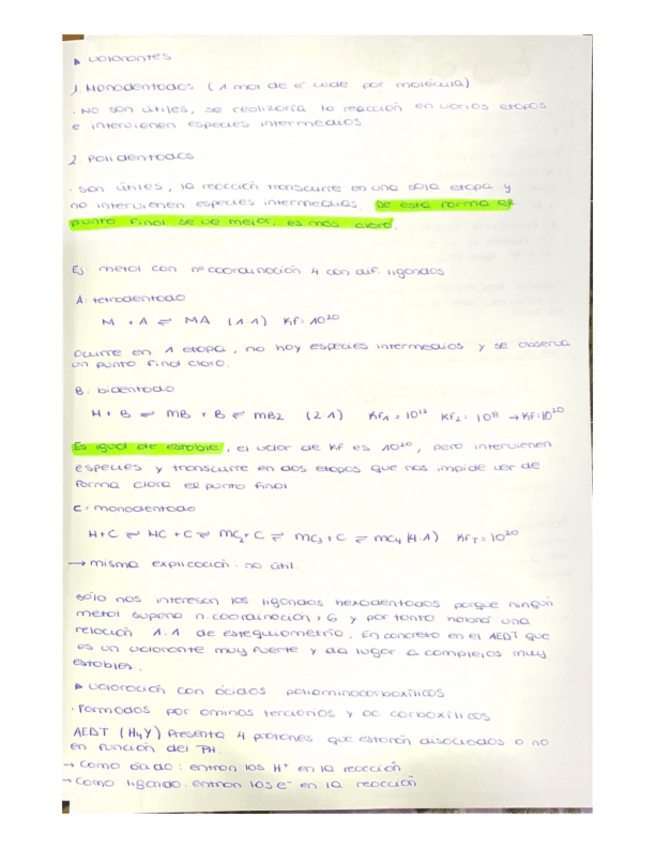 ▷ valorantes
1. Monodentados (1 mol de e⁻ cede por molécula)
· No son útiles, se realizaría la reacción en varias etapas
e intervienen especies intermedias
2. Polidentados
· son útiles, la reacción transcurre en una sola etapa y
no intervienen especies intermedias. De esta forma el
punto final se ve mejor, es más claro.
Ej: metal con nº coordinación 4 con dif. ligandos
A: tetradentado
M + A ⇌ MA (1:1) Kf: 10²⁰
Ocurre en 1 etapa, no hay especies intermedias y se observa
un punto final claro.
B: bidentado
M + B ⇌ MB + B ⇌ MB2 (2:1) Kf₁ = 10¹² Kf₂ = 10⁸ → Kf=10²⁰
Es igual de estable, el valor de Kf es 10²⁰, pero intervienen
especies y transcurre en dos etapas que nos impide ver de
forma clara el punto final.
C: monodentado
M+C ⇌ MC + C ⇌ MC₂ + C ⇌ MC₃ + C ⇌ MC₄ (4:1) Kf_T = 10²⁰
→ misma explicación: no útil.
sólo nos interesan los ligandos hexadentados porque ningún
metal supera n. coordinación > 6 y por tanto habrá una
relación 1:1 de estequiometría. En concreto en el AEDT que
es un valorante muy fuerte y da lugar a complejos muy
estables.
▷ valoración con ácidos poliaminocarboxílicos
· Formados por aminas terciarias y ac carboxílicos
AEDT (H₄Y) Presenta 4 protones que estarán disociados o no
en función del PH.
→ Como ácido: entran los H⁺ en la reacción
→ Como ligando: entran los e⁻ en la reacción